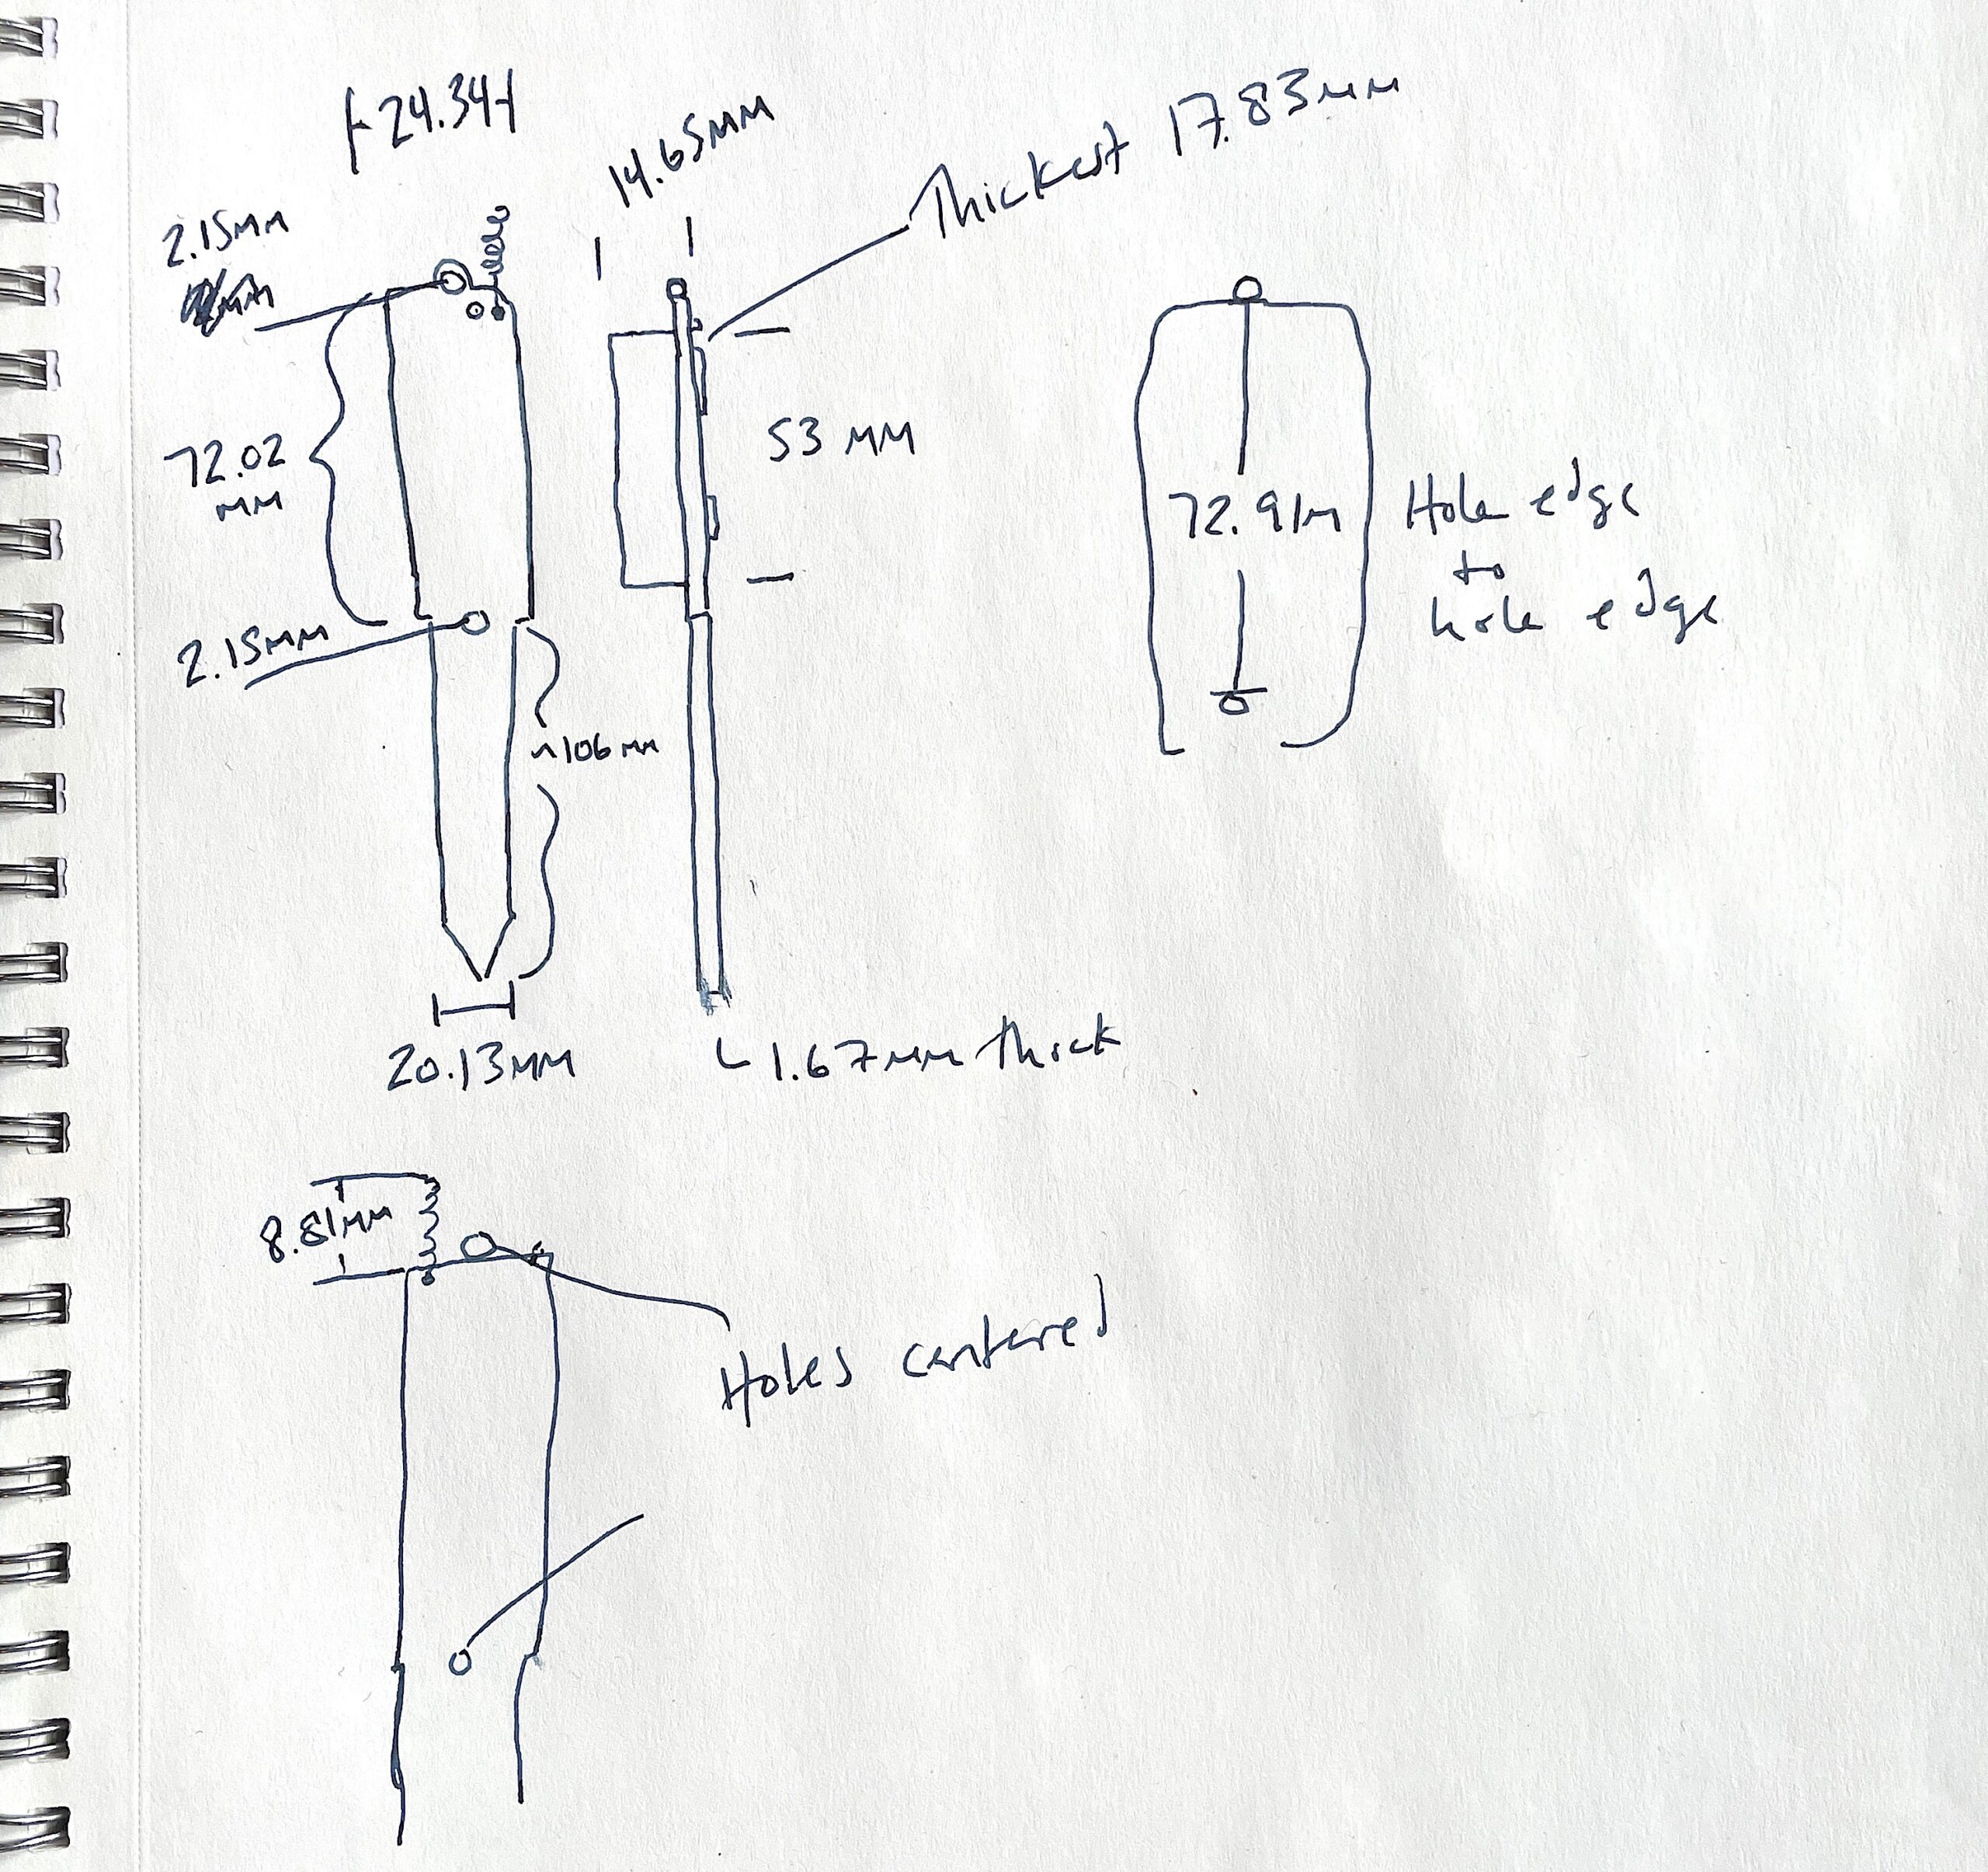 24.34
14.65mm
Thickest 17.83mm
2.15mm
mm
72.02
mm
53 mm
72.91m
Hole edge
to
hole edge
2.15mm
~106mm
20.13mm
1.67mm thick
8.81mm
Holes centered